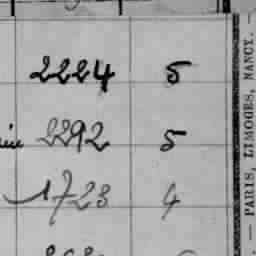 2224 5
2292 5
1723 4
— PARIS, LIMOGES, NANCY. —